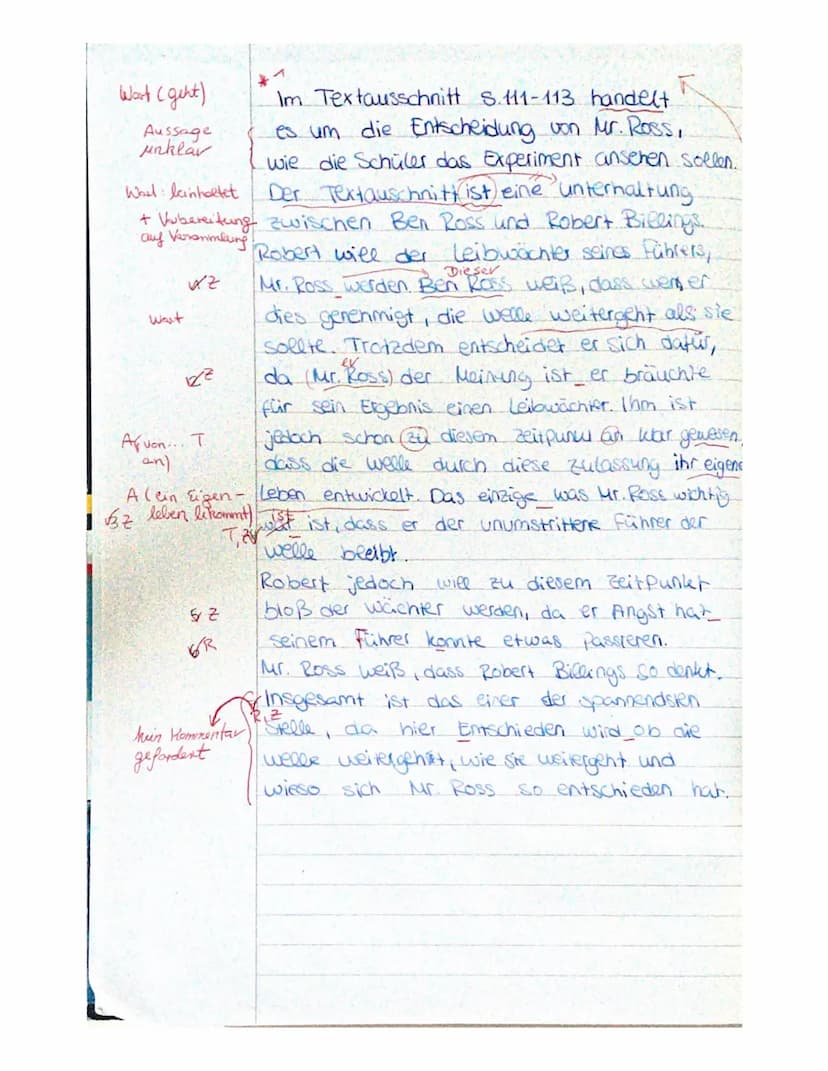 *1
Wort (geht) Im Textausschnitt S.111-113 handelt
Aussage es um die Entscheidung von Mr. Ross,
unklar wie die Schüler das Experiment ansehen sollen.
Wort: beinhaltet Der Textauschnitt ist eine unterhaltung
+ Vorbereitung zwischen Ben Ross und Robert Billings.
auf Versammlung Robert will der Leibwächter seines Führers,
Dieser
Z Mr. Ross werden. Ben Ross weiß, dass wenn er
Wort dies genehmigt, die welle weitergeht als sie
sollte. Trotzdem entscheidet er sich dafür,
er
Z da (Mr. Ross) der Meinung ist er bräuchte
für sein Ergebnis einen Leibwächter. Ihm ist
A (von... T jedoch schon zu diesem Zeitpunkt an klar gewesen,
an) dass die welle durch diese zulassung ihr eigenes
A (ein Eigen- Leben entwickelt. Das einzige was Mr. Ross wichtig
leben bekommt) ist
3 Z T, Z war ist, dass er der unumstrittene Führer der
welle bleibt.
Robert jedoch will zu diesem Zeitpunkt
5 Z bloß der Wächter werden, da er Angst hat
6 R seinem Führer könnte etwas passieren.
Mr. Ross weiß, dass Robert Billings so denkt.
Insgesamt ist das einer der spannendsten
R, Z
kein Kommentar Stelle, da hier Entschieden wird ob die
gefordert welle weitergeht, wie sie weitergeht und
wieso sich Mr. Ross so entschieden hat.